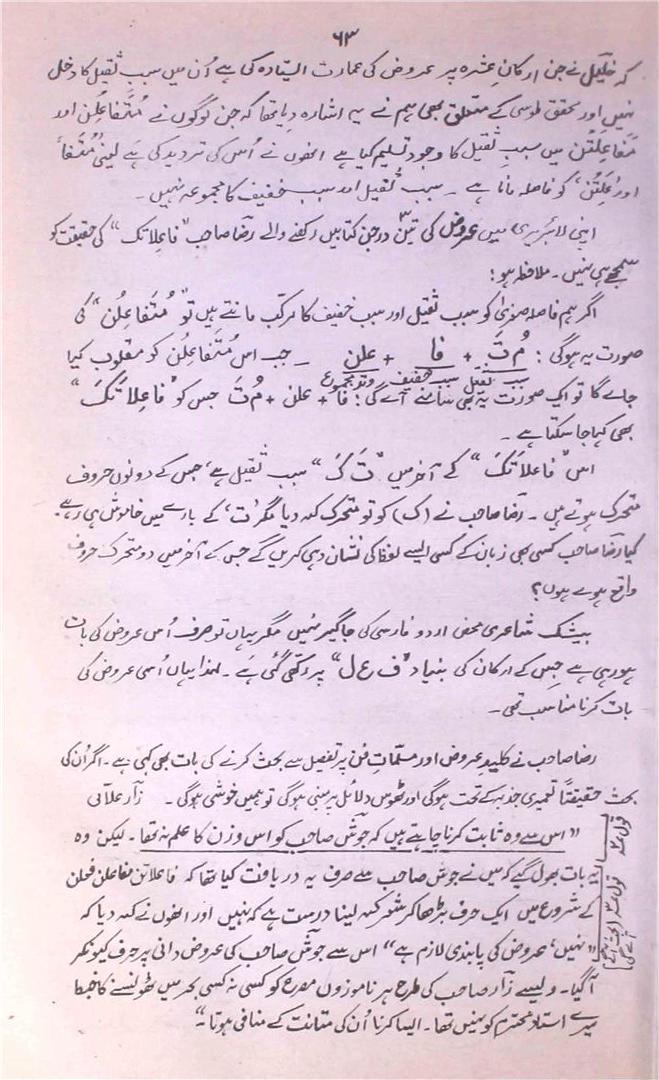 ۶۳
کہ خلیل نے جن ارکانِ عشرہ پر عروض کی عمارت ایستادہ کی ہے اُن میں سبب ثقیل کا دخل
نہیں اور محقق طوسی کے متعلق بھی ہم نے یہ اشارہ دیا تھا کہ جن لوگوں نے مُتَفاعِلن اور
مَفاعِلَتُن میں سببِ ثقیل کا وجود تسلیم کیا ہے انھوں نے اُس کی تردید کی ہے لینی ’مُتَفا‘
اور ’عِلَتُن‘ کو فاصلہ مانا ہے ۔ سبب ثقیل اور سبب خفیف کا مجموعہ نہیں۔
اپنی لائبریری میں عروض کی تین درجن کتابیں رکھنے والے رضا صاحب "فاعلاتک" کی حقیقت کو
سمجھے ہی نہیں۔ ملاحظہ ہو:
اگر ہم فاصلہ صغریٰ کو سبب ثقیل اور سبب خفیف کا مرکب مانتے ہیں تو "مُتَفاعِلُن" کی
صورت یہ ہوگی: مُ تَ + فا + علن ۔ جب اس مُتَفاعِلن کو مقلوب کیا
سبب ثقیل سبب خفیف وتد مجموع
جاے گا تو ایک صورت یہ بھی سامنے آے گی: فا + علن + مُ تَ جس کو "فاعِلاتَکَ"
بھی کہا جا سکتا ہے ۔
اس "فاعلاتَکَ" کے آخر میں "تَ کَ" سبب ثقیل ہے، جس کے دونوں حروف
متحرک ہوتے ہیں ۔ رضا صاحب نے (ک) کو تو متحرک کہہ دیا مگر ’ت‘ کے بارے میں خاموش ہی رہے۔
کیا رضا صاحب کسی بھی زبان کے کسی ایسے لفظ کی نشان دہی کریں گے جس کے آخر میں دو متحرک حروف
واقع ہوے ہوں؟
بیشک شاعری محض اردو فارسی کی جاگیر نہیں مگر یہاں تو صرف اُس عروض کی بات
ہو رہی ہے جس کے ارکان کی بنیاد "ف ع ل" پر رکھی گئی ہے ۔ لہٰذا یہاں اُسی عروض کی
بات کرنا مناسب تھی ۔
رضا صاحب نے کلیدِ عروض اور مسلّماتِ فن پر تفصیل سے بحث کرنے کی بات بھی کہی ہے ۔ اگر اُن کی
بحث حقیقتاً تعمیری جذبہ کے تحت ہوگی اور ٹھوس دلائل پر مبنی ہوگی تو ہمیں خوشی ہوگی ۔ زار علامی
"اس سے وہ ثابت کرنا چاہتے ہیں کہ جوش صاحب کو اس وزن کا علم نہ تھا ۔ لیکن وہ
یہ بات بھول گئے کہ میں نے جوش صاحب سے صرف یہ دریافت کیا تھا کہ فاعلاتن مفاعلن فعلن
کے شروع میں ایک حرف بڑھا کر شعر کہہ لینا درست ہے کہ نہیں اور انھوں نے کہہ دیا کہ
"نہیں، عروض کی پابندی لازم ہے" اس سے جوش صاحب کی عروض دانی پر حرف کیونکر
آ گیا۔ ویسے زار صاحب کی طرح ہر ناموزوں مصرع کو کسی نہ کسی بحر میں ٹھونسنے کا خبط
میرے استاد محترم کو نہیں تھا ۔ ایسا کرنا اُن کی متانت کے منافی ہوتا ۔"